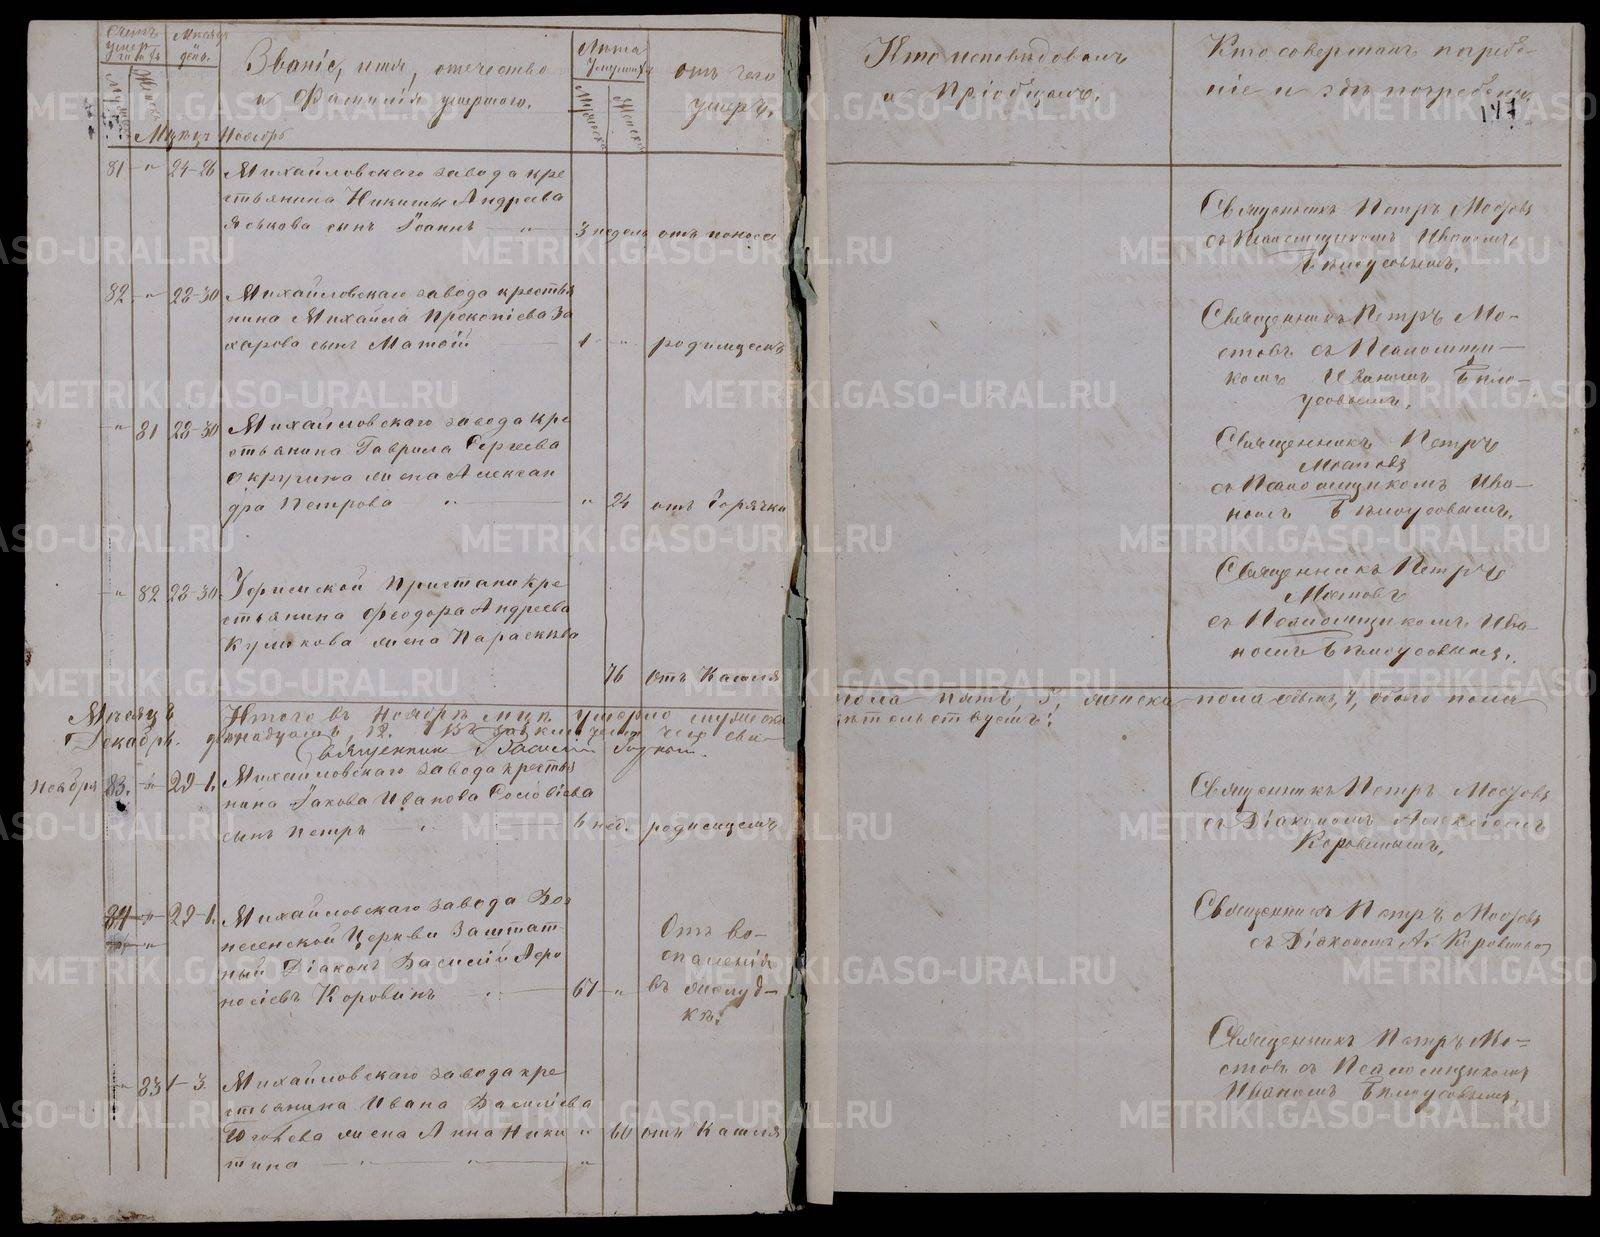 Счетъ умер
Мѣсяцъ и день.
Званіе, имя, отечество
и Фамилія умершаго.
Лѣта умершаго
отъ чего
умеръ.
Кто исповѣдовалъ
и Пріобщалъ.
Кто совершалъ погребе-
ніе и гдѣ погребены
147
Мужеска
Женска
Мужеска
Женска
Мѣсяцъ Ноябрь
81 " 24-26 Михайловскаго завода кре
стьянина Никиты Андреева
сынъ Іоаннъ " 3 недель отъ поноса
Священникъ Петръ Мостовъ
съ Псаломщикомъ Иваномъ
Бѣлоусовымъ.
82 " 28-30 Михайловскаго завода крестья
нина Михаила Прокопіева За
харова сынъ Матѳій 1 " родимцемъ
Священникъ Петръ Мо-
стовъ съ Псаломщи-
комъ Иваномъ Бѣло-
усовымъ.
" 81 28-30 Михайловскаго завода кре
стьянина Гаврила Сергѣева
Окружина жена Алексан
дра Петрова " " 24 отъ Горячки
Священникъ Петръ
Мостовъ
съ Псаломщикомъ Ива-
номъ Бѣлоусовымъ.
" 82 28-30 Уфимской Пристани кре
стьянина Феодора Андреева
Куликова жена Параскева
76 отъ Кашля
Священникъ Петръ
Мостовъ
съ Псаломщикомъ Ива-
номъ Бѣлоусовымъ.
Мѣсяцъ
Декабрь.
Итого въ Ноябрѣ м-цѣ умерло мужеска
пола пять, 5, женска пола семь, 7, обоего пола
двѣнадцать, 12. въ чемъ сви-
дѣтельствуетъ:
Священникъ Василій
Ноября 83. " 29-1. Михайловскаго завода крестья
нина Іакова Иванова
сынъ Петръ " 6 нед. родимцемъ
Священникъ Петръ Мостовъ
съ Діакономъ Алексіемъ
Коровинымъ.
84 " 29-1. Михайловскаго завода Воз
несенской Церкви Заштат
ный Діаконъ Василій Аѳо
насіевъ Коровинъ 67 "
Отъ во-
спаленія
въ желуд-
кѣ.
Священникъ Петръ Мостовъ
съ Діакономъ Ал. Коровинымъ
" 83 1-3. Михайловскаго завода кре
стьянина Ивана Василіева
жена Анна Ники " 60 отъ Кашля
тина " " "
Священникъ Петръ Мо-
стовъ съ Псаломщикомъ
Иваномъ Бѣлоусовымъ.
METRIKI.GASO-URAL.RU